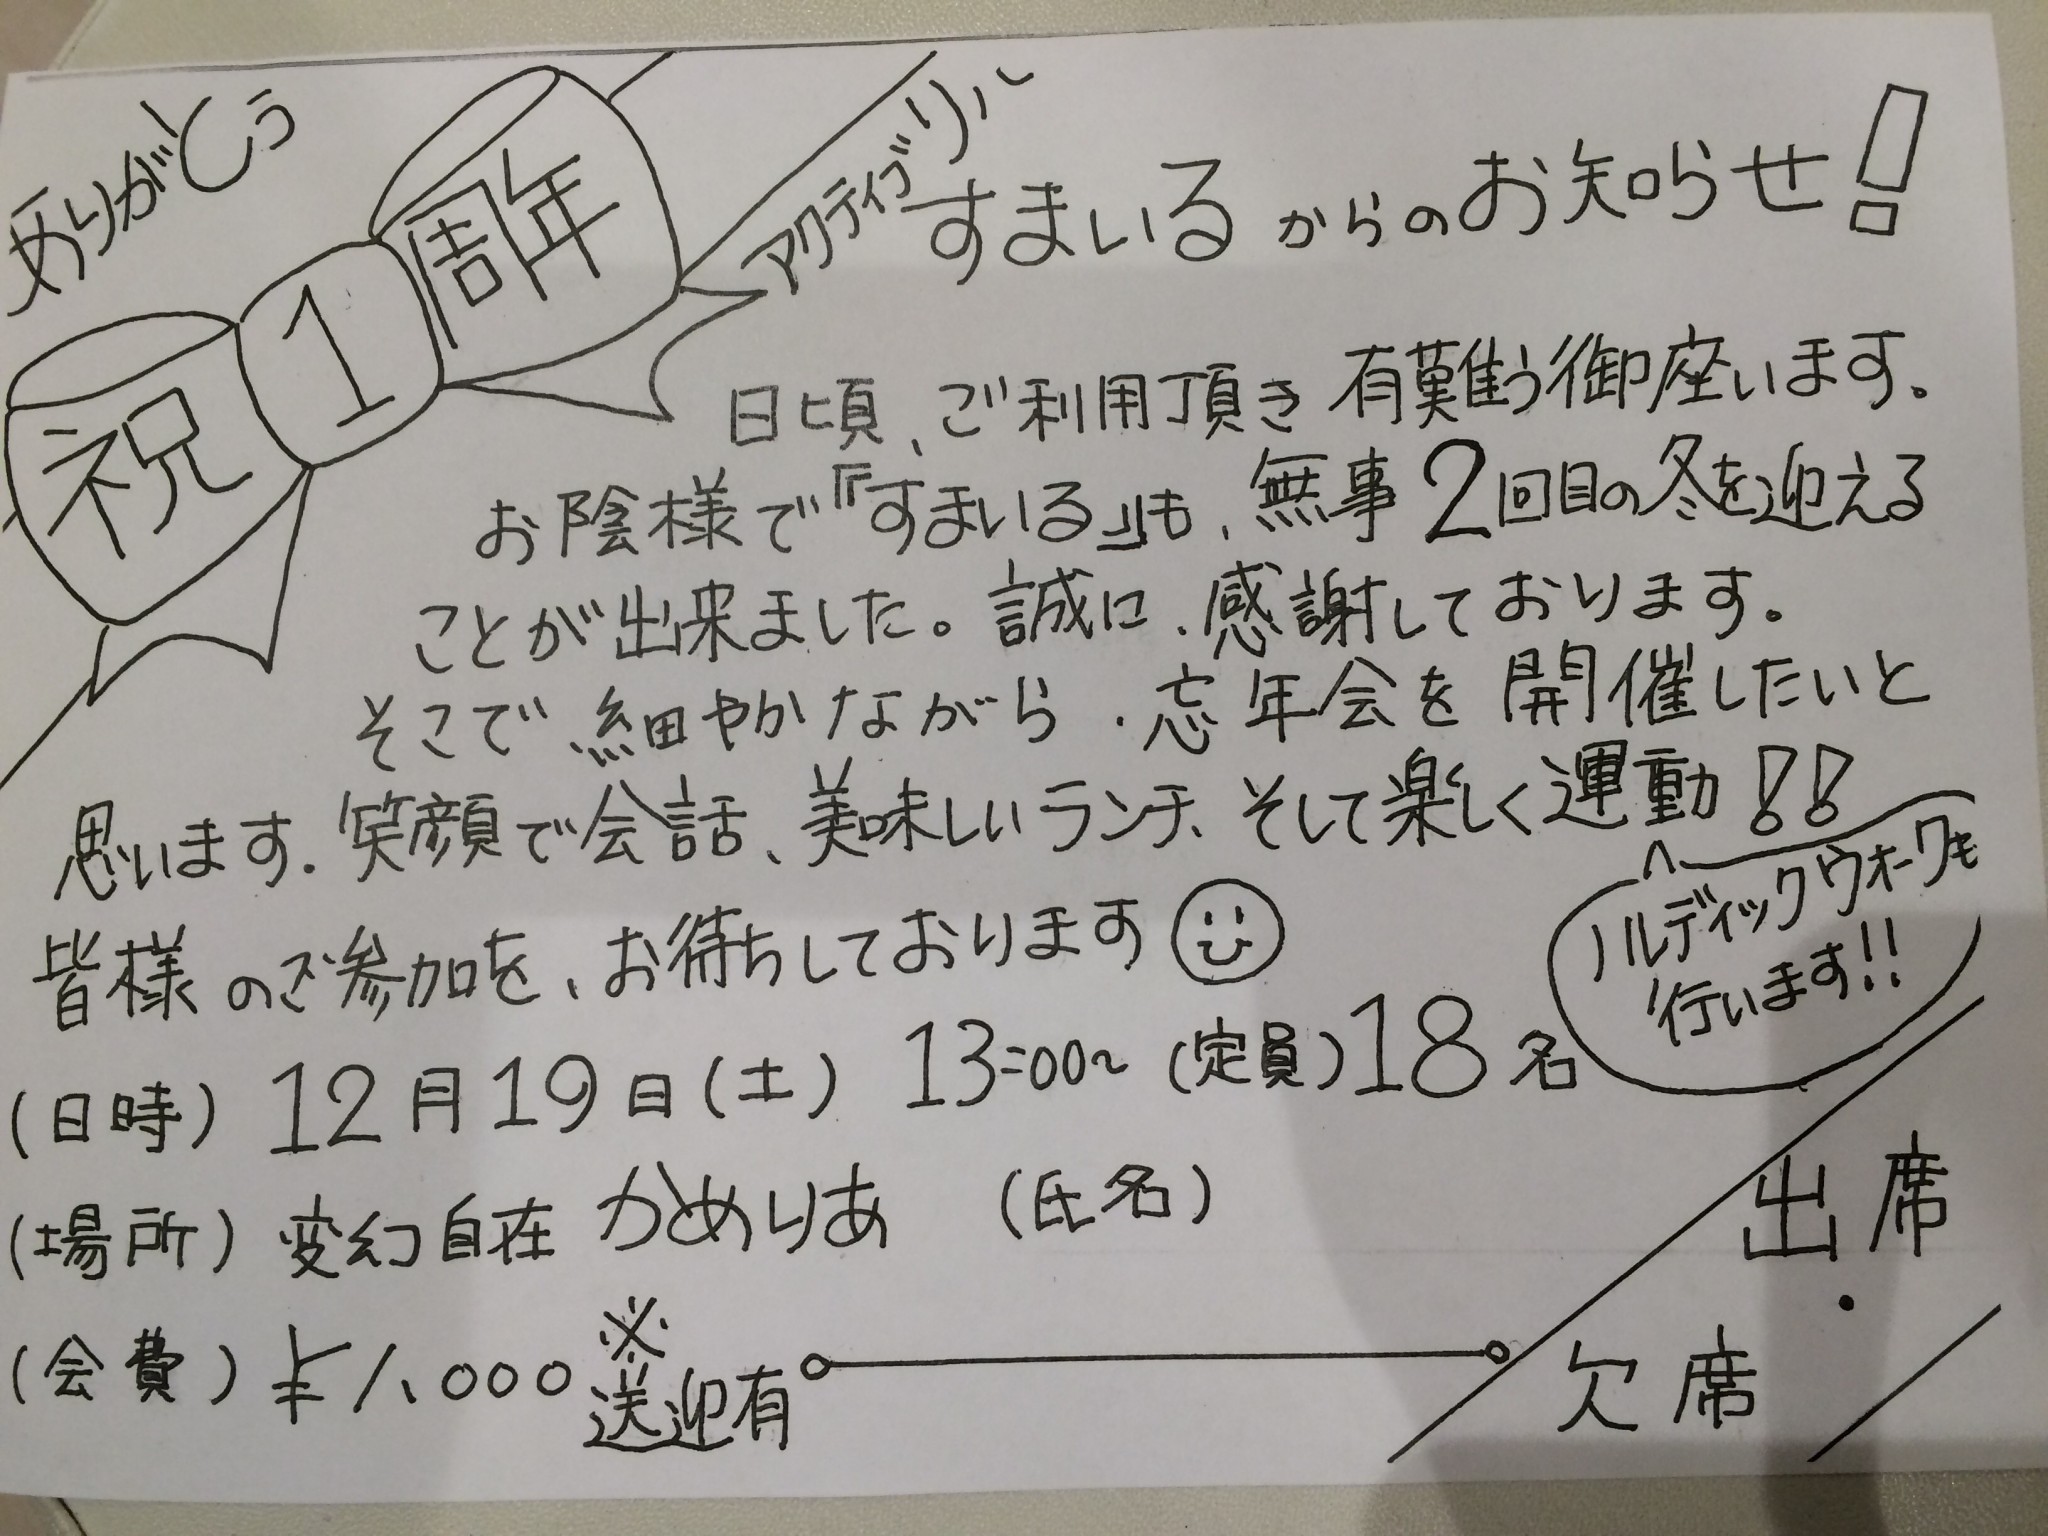 ありがとう
祝1周年
アクティブリハ
すまいるからのお知らせ!
日頃、ご利用頂き有難う御座います。
お陰様で『すまいる』も、無事2回目の冬を迎える
ことが出来ました。誠に、感謝しております。
そこで、細やかながら、忘年会を開催したいと
思います。笑顔で会話、美味しいランチ、そして楽しく運動!!
ノルディックウォークも
行います!!
皆様のご参加を、お待ちしております
(日時) 12月19日(土) 13:00~ (定員)18名
(場所) 変幻自在 かめりあ (氏名)
(会費) ¥1,000 ※送迎有
出席
・
欠席